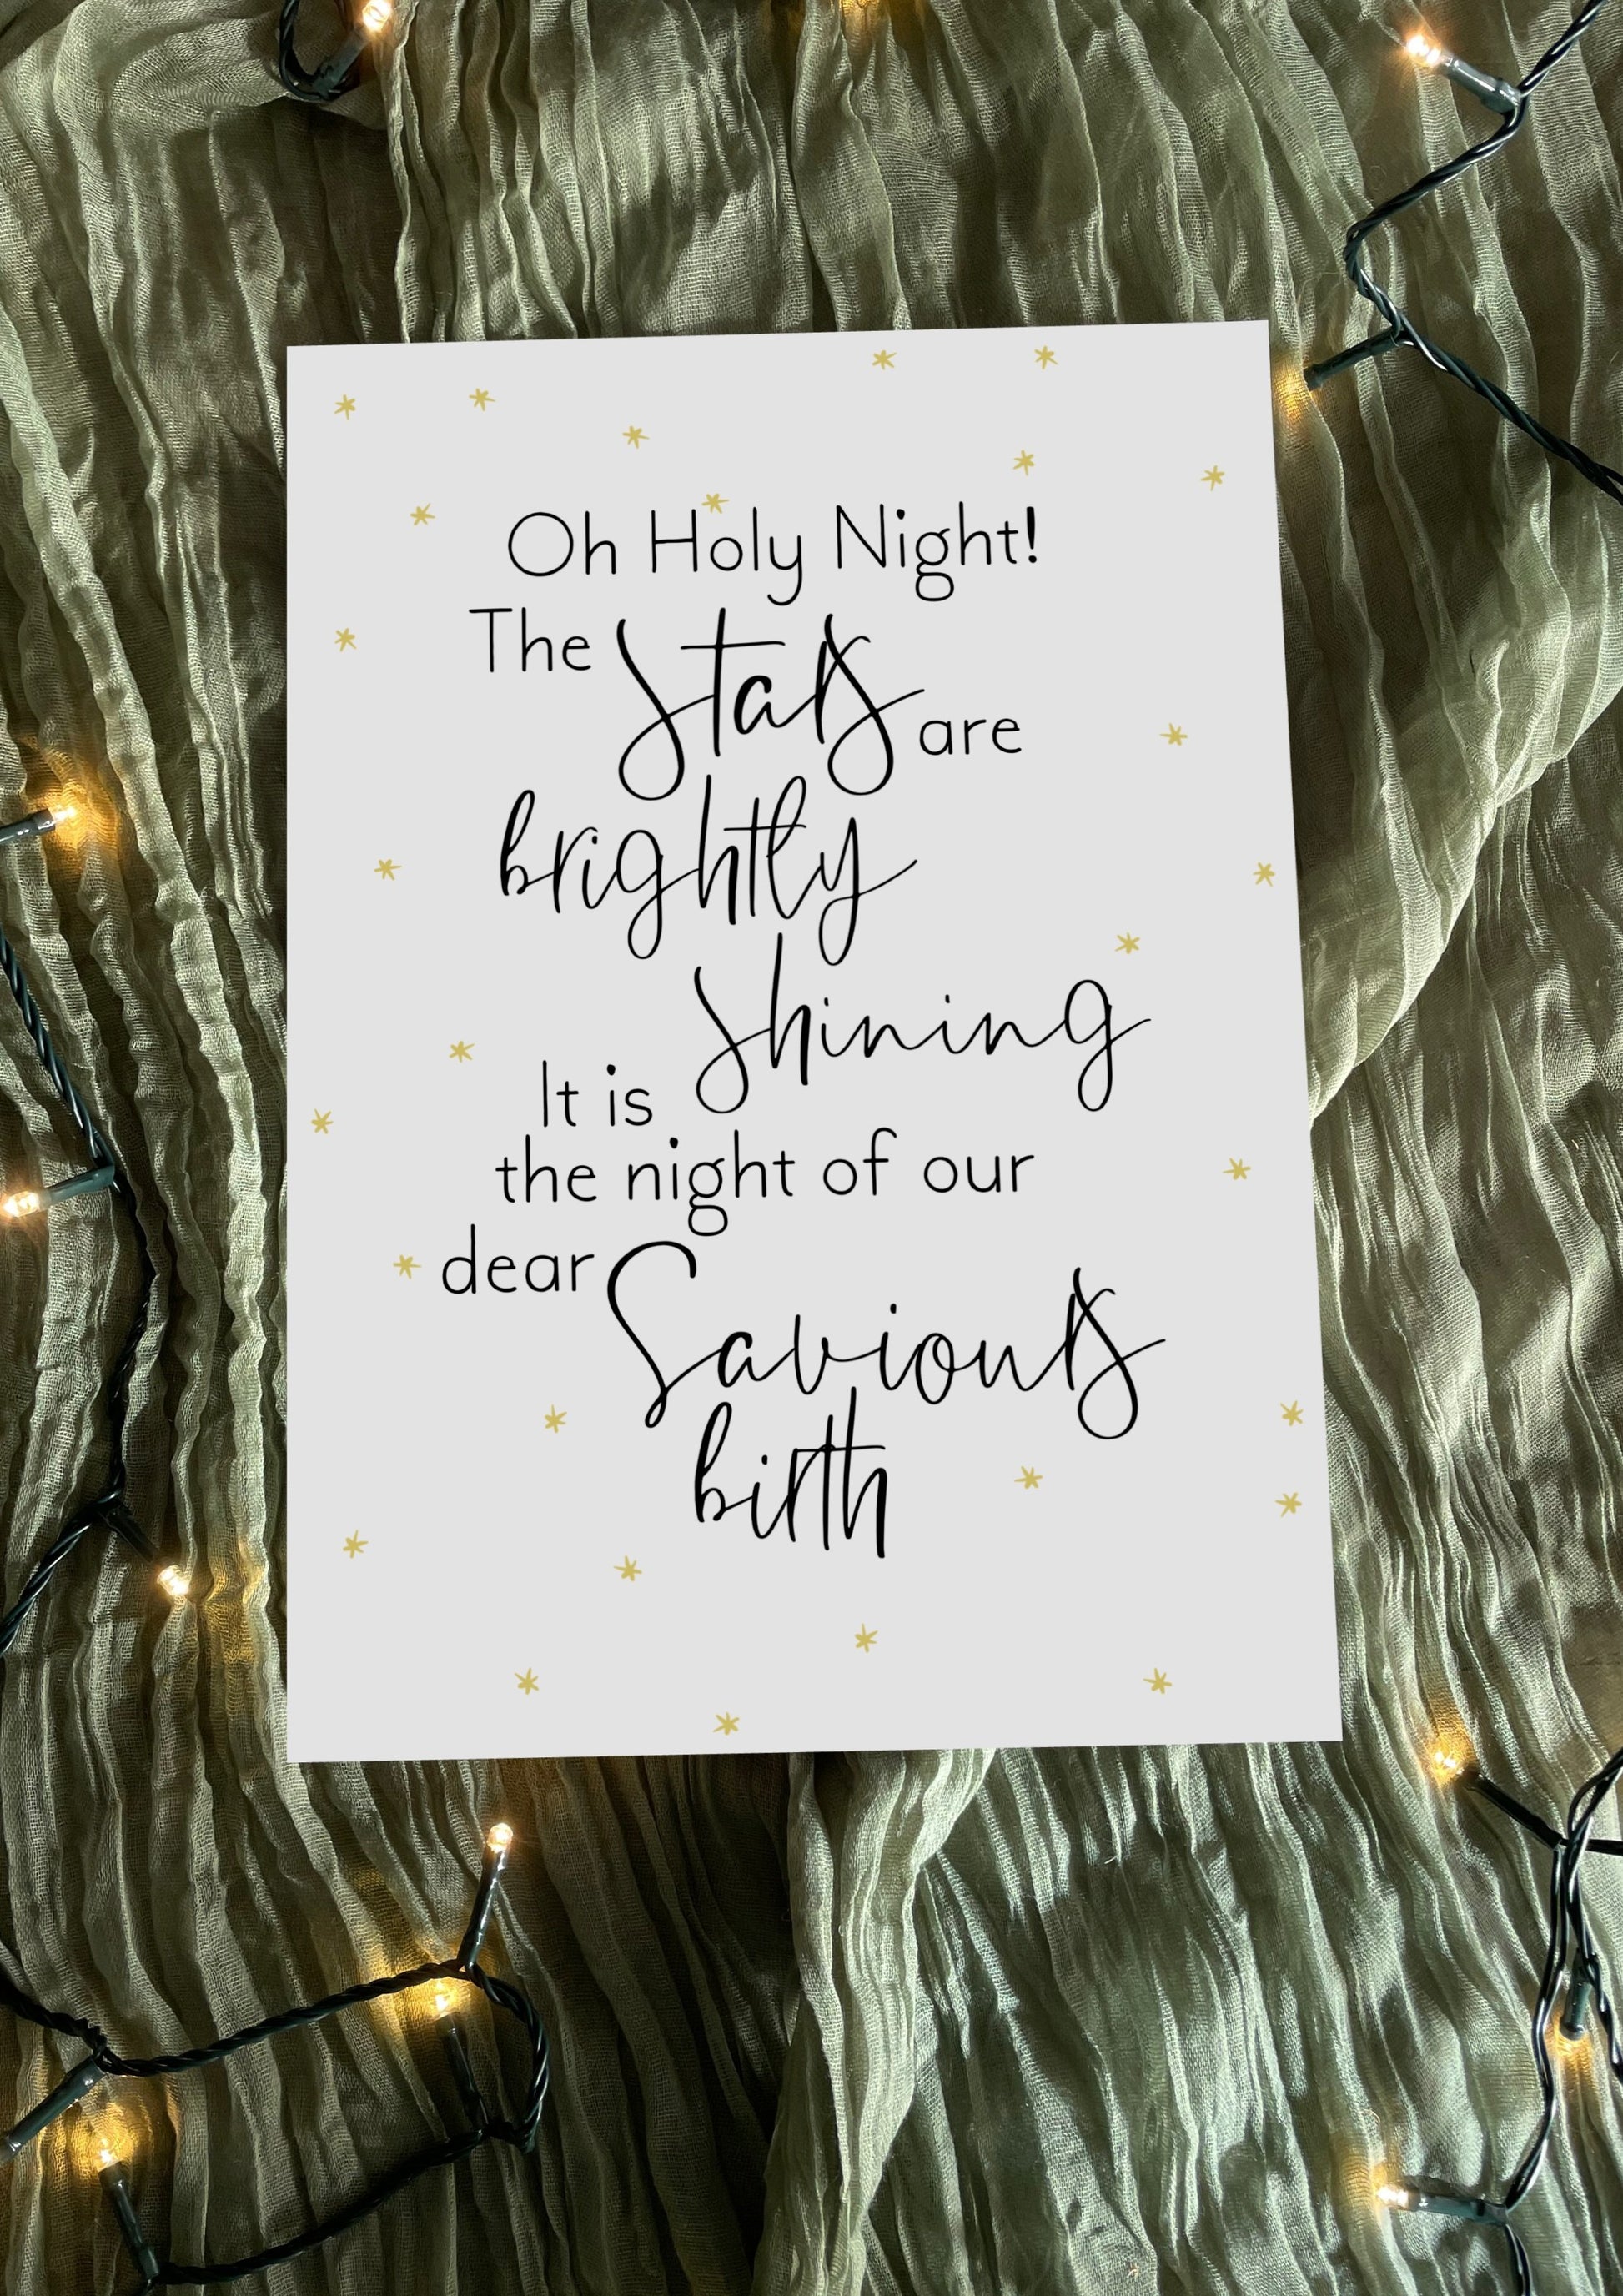 Oh Holy Night!
The Stars are
brightly
shining
It is
the night of our
dear Saviours
birth